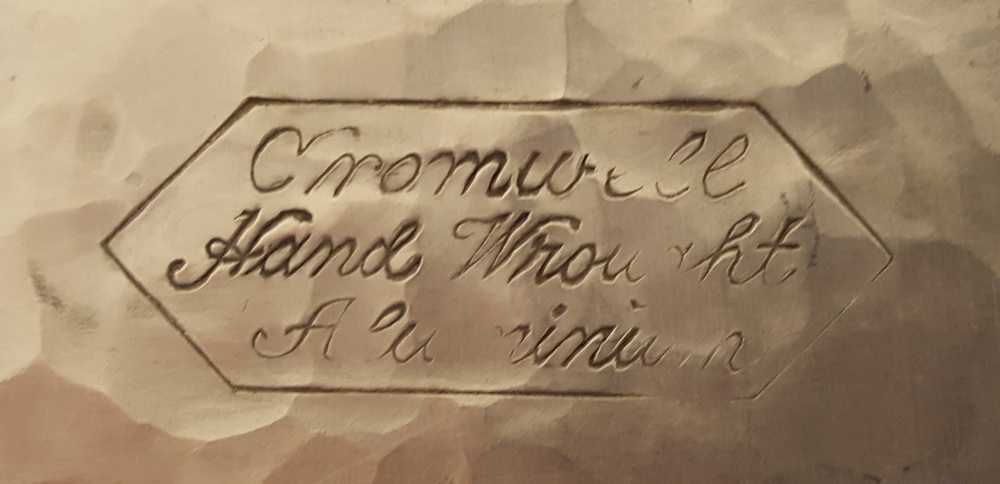 Cromwell
Hand Wrought
Aluminium